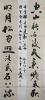 空山新雨後天氣晚来秋
明月松間照清泉石上流